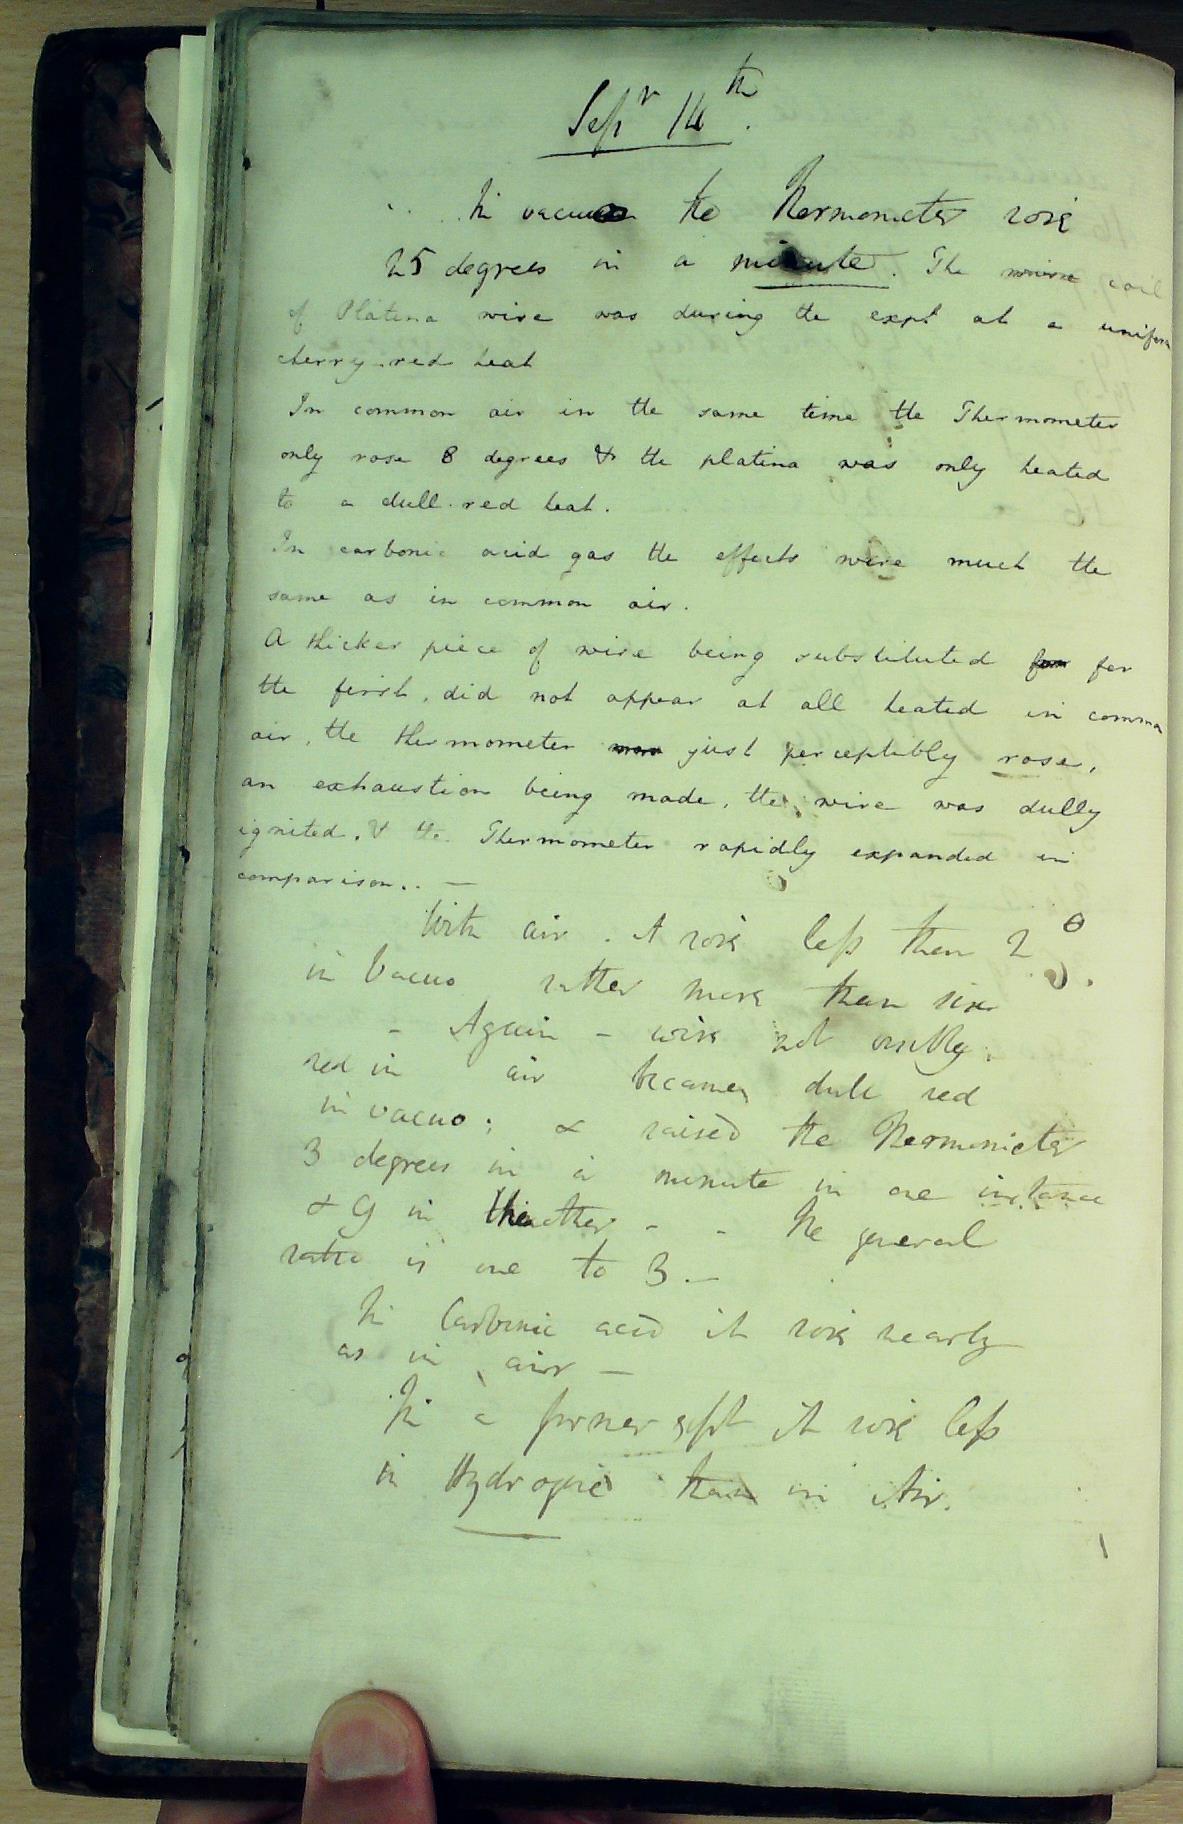 Sepr 14th.
In vacuo the Thermometer rose
25 degrees in a minute. The coil
of Platina wire was during the expt at a uniform
cherry-red heat
In common air in the same time the Thermometer
only rose 8 degrees & the platina was only heated
to a dull-red heat.
In carbonic acid gas the effects were much the
same as in common air.
A thicker piece of wire being substituted for
the first, did not appear at all heated in common
air, the thermometer just perceptibly rose,
an exhaustion being made, the wire was dully
ignited, & the Thermometer rapidly expanded in
comparison. . —
With air. It rose less than 2°
in Vacuo rather more than six
- Again - wire not visibly
red in air became dull red
in vacuo; & raised the Thermometer
3 degrees in a minute in one instance
& 9 in the other - - The general
ratio is one to 3. —
In Carbonic acid it rose nearly
as in air —
In a former expt it rose less
in Hydrogene than in Air.